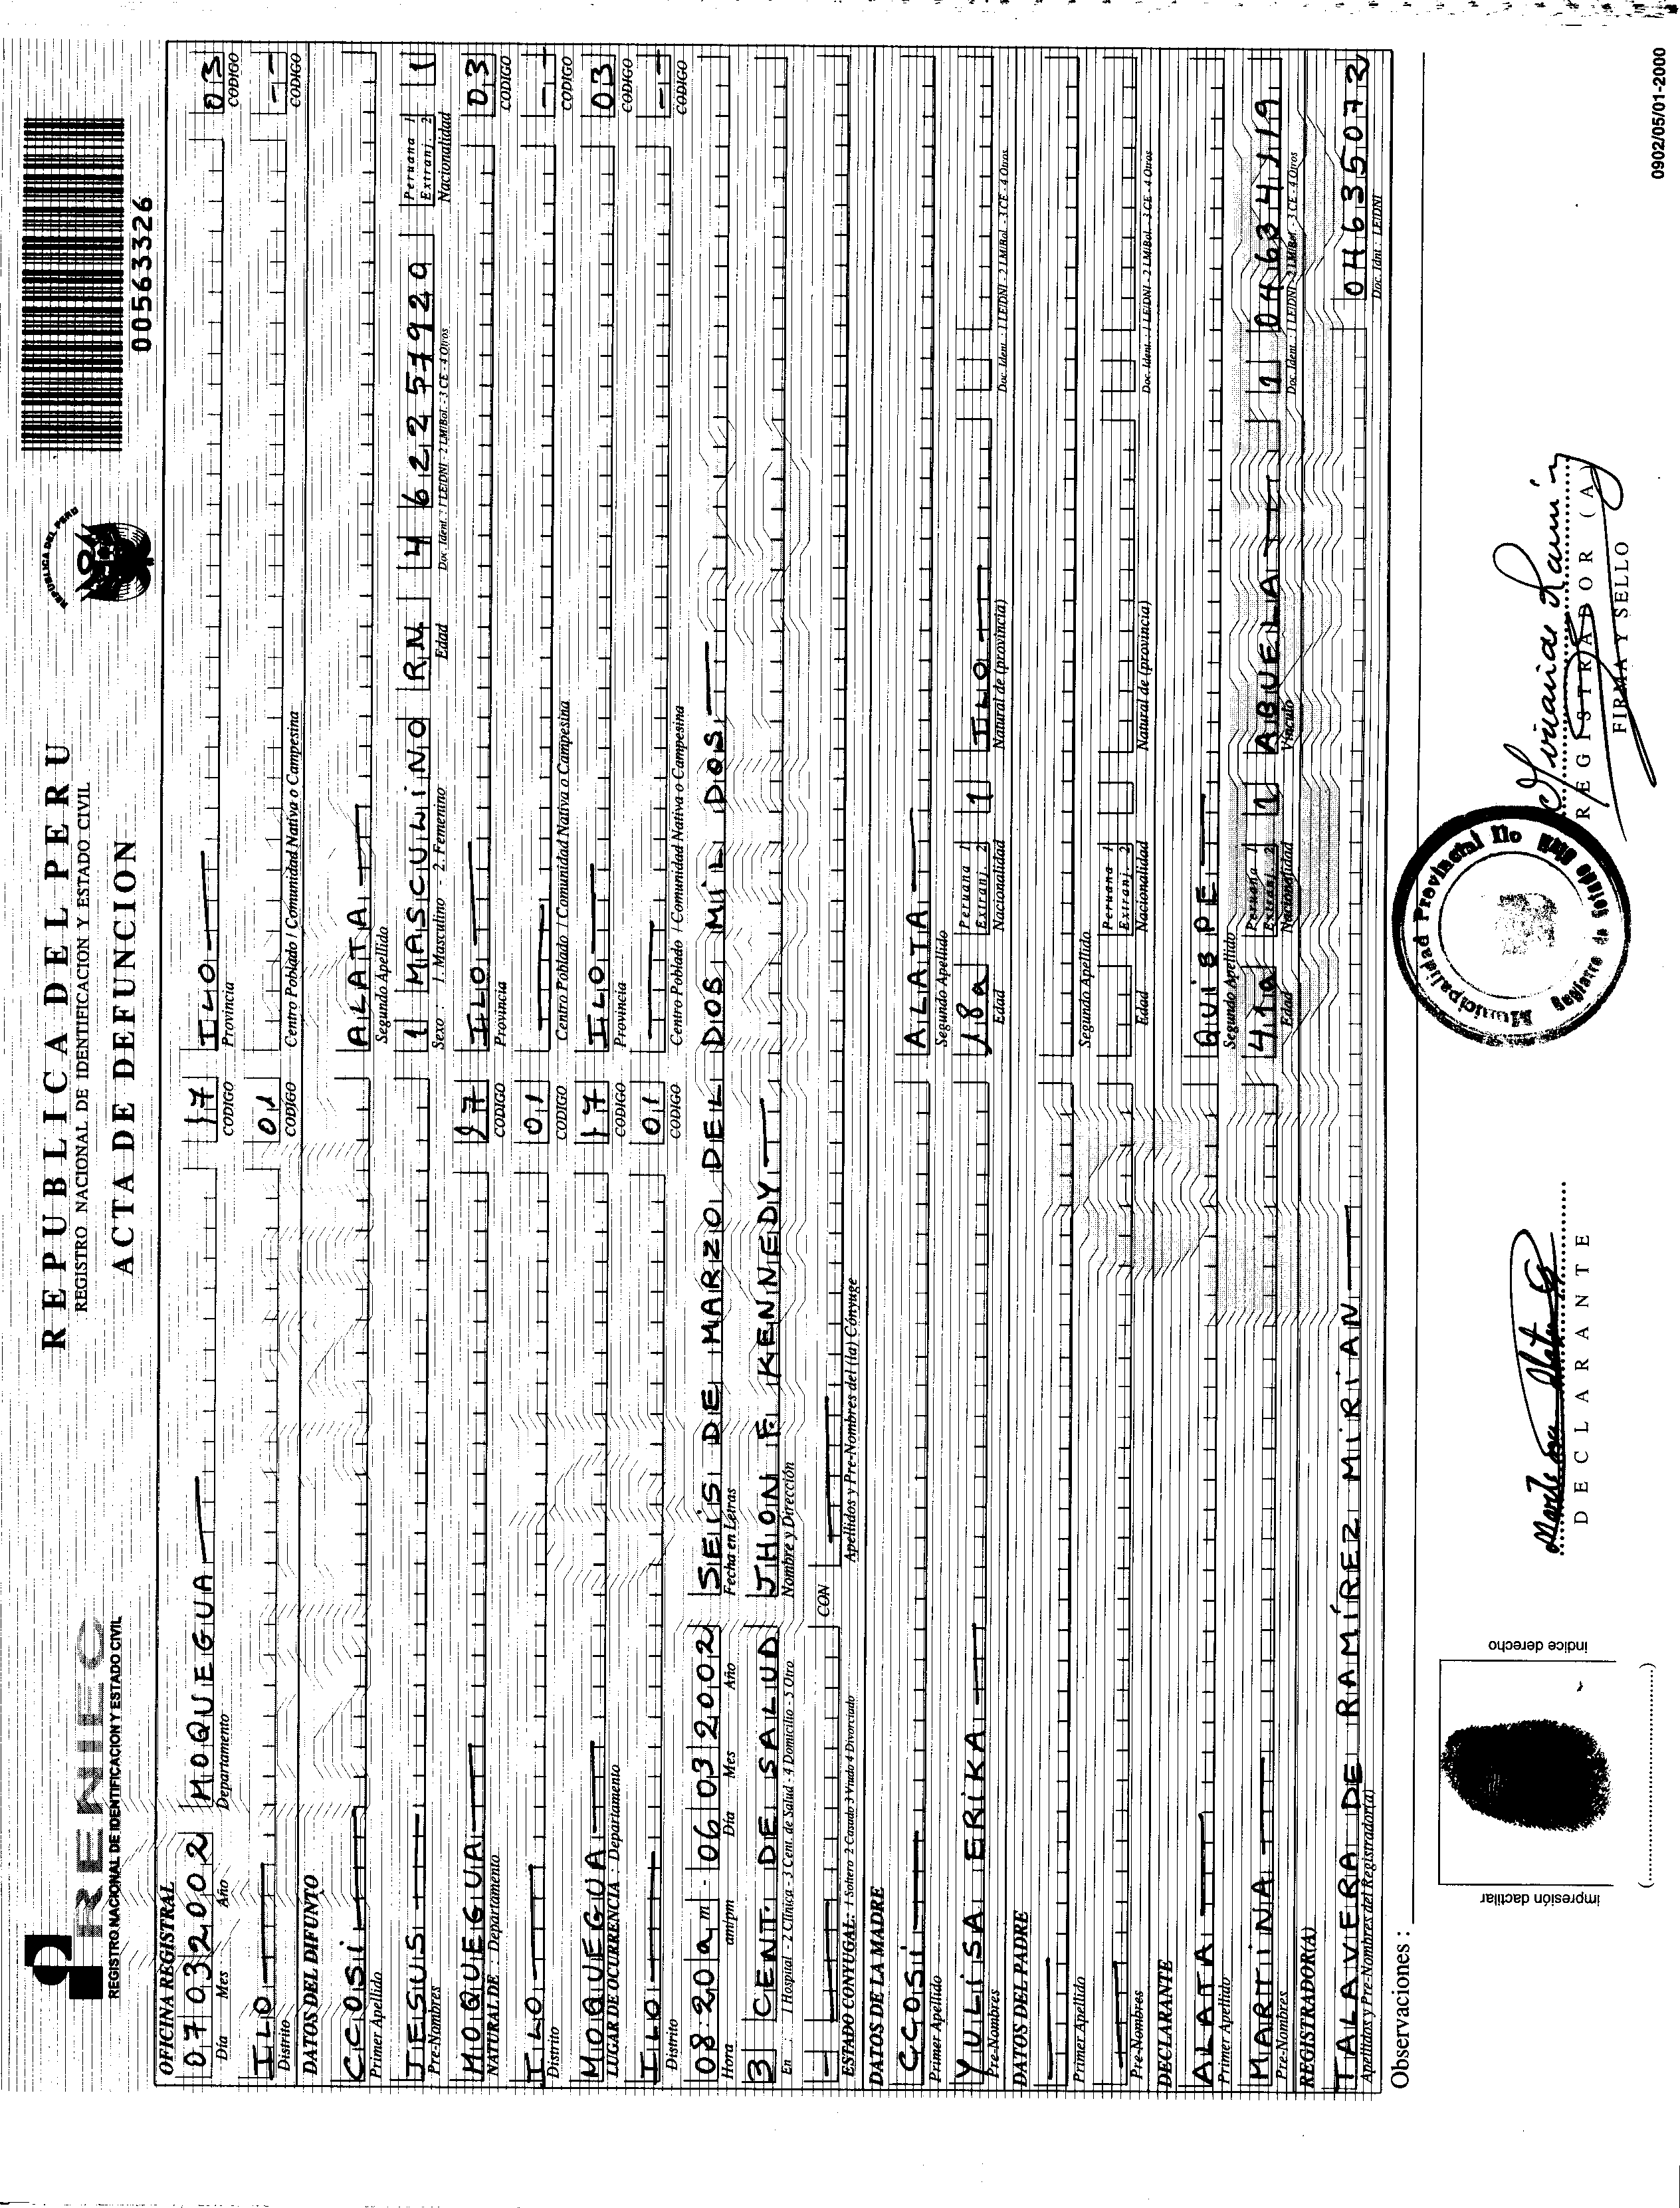 RENIEC
REGISTRO NACIONAL DE IDENTIFICACION Y ESTADO CIVIL
REPUBLICA DEL PERU
REGISTRO NACIONAL DE IDENTIFICACION Y ESTADO CIVIL
ACTA DE DEFUNCION
REPUBLICA DEL PERU
00563326
OFICINA REGISTRAL
07 03 2002 MOQUEGUA 17 ILO 03
Día Mes Año Departamento CODIGO Provincia CODIGO
ILO 01 --
Distrito CODIGO Centro Poblado / Comunidad Nativa o Campesina CODIGO
DATOS DEL DIFUNTO
CCOSI ALATA
Primer Apellido Segundo Apellido
JESUS 1 MASCULINO RN 4 62257929 Peruana 1 Extranj. 2 1
Pre-Nombres Sexo : 1. Masculino - 2. Femenino Edad Doc. Ident. : 1 LE/DNI - 2 LM/Bol. - 3 CE - 4 Otros Nacionalidad
MOQUEGUA 17 ILO 03
NATURAL DE : Departamento CODIGO Provincia CODIGO
ILO 01 --
Distrito CODIGO Centro Poblado / Comunidad Nativa o Campesina CODIGO
MOQUEGUA 17 ILO 03
LUGAR DE OCURRENCIA : Departamento CODIGO Provincia CODIGO
ILO 01 --
Distrito CODIGO Centro Poblado / Comunidad Nativa o Campesina CODIGO
08:20 am - 06 03 2002 SEIS DE MARZO DEL DOS MIL DOS
Hora am/pm Día Mes Año Fecha en Letras
3 CENT. DE SALUD JHON F. KENNEDY
En : 1 Hospital - 2 Clínica - 3 Cent. de Salud - 4 Domicilio - 5 Otro Nombre y Dirección
- CON
ESTADO CONYUGAL: 1 Soltero 2 Casado 3 Viudo 4 Divorciado Apellidos y Pre-Nombres del (la) Cónyuge
DATOS DE LA MADRE
CCOSI ALATA
Primer Apellido Segundo Apellido
YULISA ERIKA 18a Peruana 1 Extranj. 2 1 ILO
Pre-Nombres Edad Nacionalidad Natural de (provincia) Doc. Ident. : 1 LE/DNI - 2 LM/Bol. - 3 CE - 4 Otros
DATOS DEL PADRE
Primer Apellido Segundo Apellido
Peruana 1 Extranj. 2
Pre-Nombres Edad Nacionalidad Natural de (provincia) Doc. Ident. : 1 LE/DNI - 2 LM/Bol. - 3 CE - 4 Otros
DECLARANTE
ALATA QUISPE
Primer Apellido Segundo Apellido
MARTINA 41a Peruana 1 Extranj. 2 1 ABUELA 1 04634119
Pre-Nombres Edad Nacionalidad Vínculo Doc. Ident. : 1 LE/DNI - 2 LM/Bol. - 3 CE - 4 Otros
REGISTRADOR(A)
TALAVERA DE RAMÍREZ MIRIAN 04635072
Apellidos y Pre-Nombres del Registrador(a) Doc. Idnt : LE/DNI
Observaciones :
impresión dactilar
indice derecho
(........................)
DECLARANTE
Municipalidad Provincial Ilo
Registro de
REGISTRADOR (A)
FIRMA Y SELLO
0902/05/01-2000